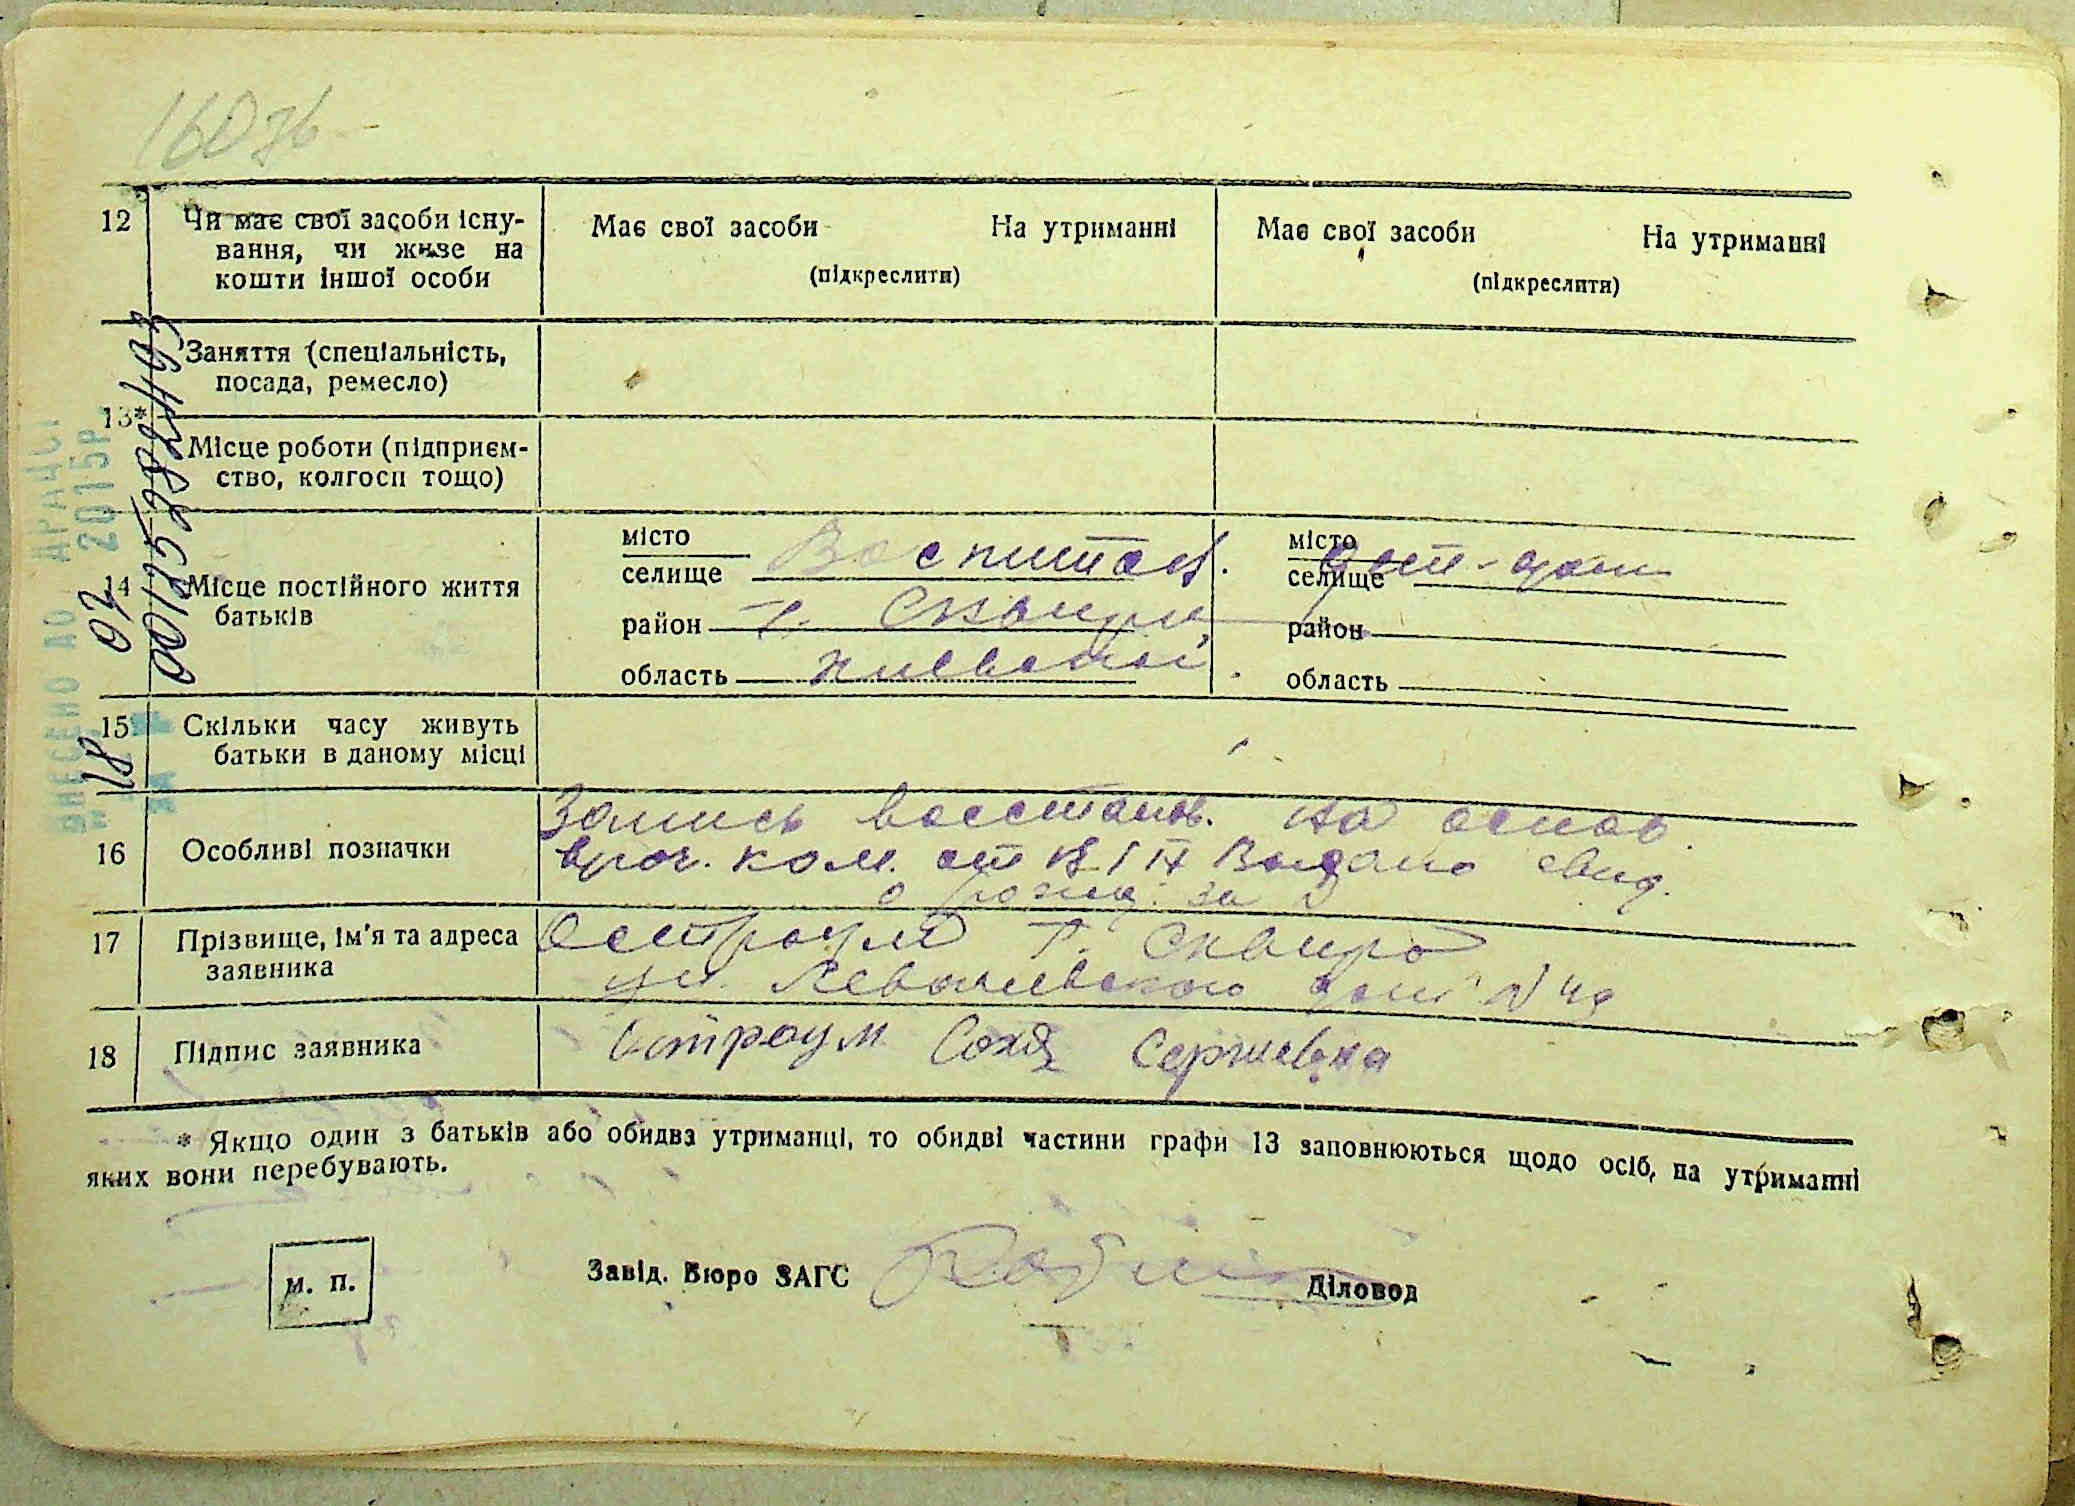 12 Чи має свої засоби існу-
вання, чи живе на
кошти іншої особи
Має свої засоби На утриманні
(підкреслити)
Має свої засоби На утриманні
(підкреслити)
13* Заняття (спеціальність,
посада, ремесло)
Місце роботи (підприєм-
ство, колгосп тощо)
14 Місце постійного життя
батьків
місто
селище Воспитан.
район г. Сквира
область Киевской
місто дет-дом
селище
район
область
15 Скільки часу живуть
батьки в даному місці
16 Особливі позначки
Запись восстанов. на основ.
врач. ком. от Выдано свид.
о рожд. за №
17 Прізвище, ім'я та адреса
заявника
Остроум г. Сквира
ул. дом №
18 Підпис заявника
Остроум Соня Сергиевна
* Якщо один з батьків або обидва утриманці, то обидві частини графи 13 заповнюються щодо осіб, на утриманні
яких вони перебувають.
м. п.
Завід. Бюро ЗАГС Діловод
ВНЕСЕНО ДО ДРАЦСГ
18 07 2015р.
ЗА №
00125282493